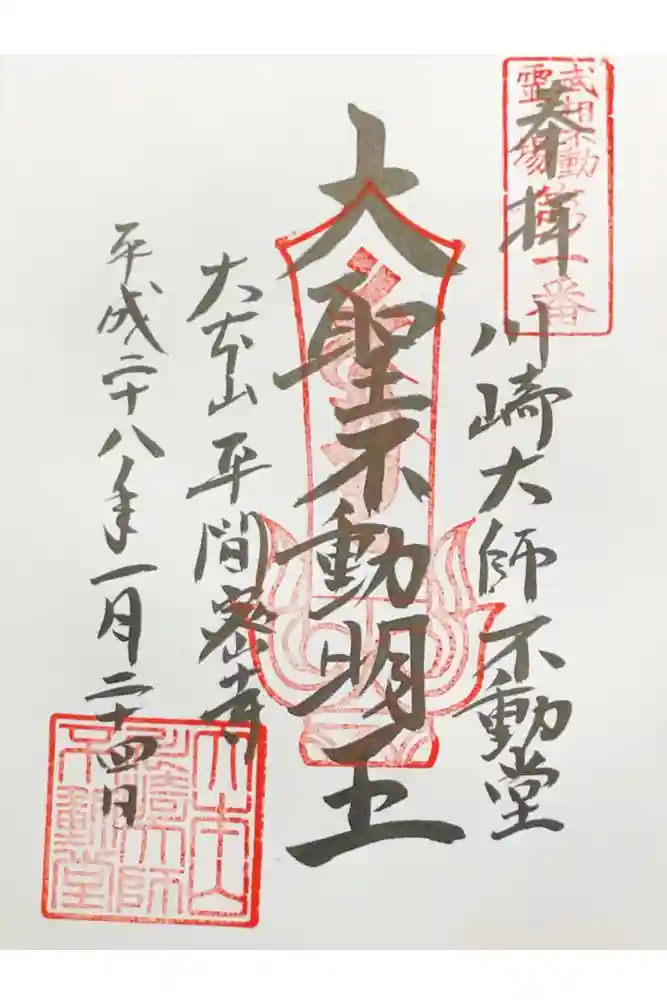 武相不動
霊場第一番
奉拝
川崎大師不動堂
大聖不動明王
大本山平間密寺
平成二十八年一月二十四日
大本山
川崎大師
不動堂